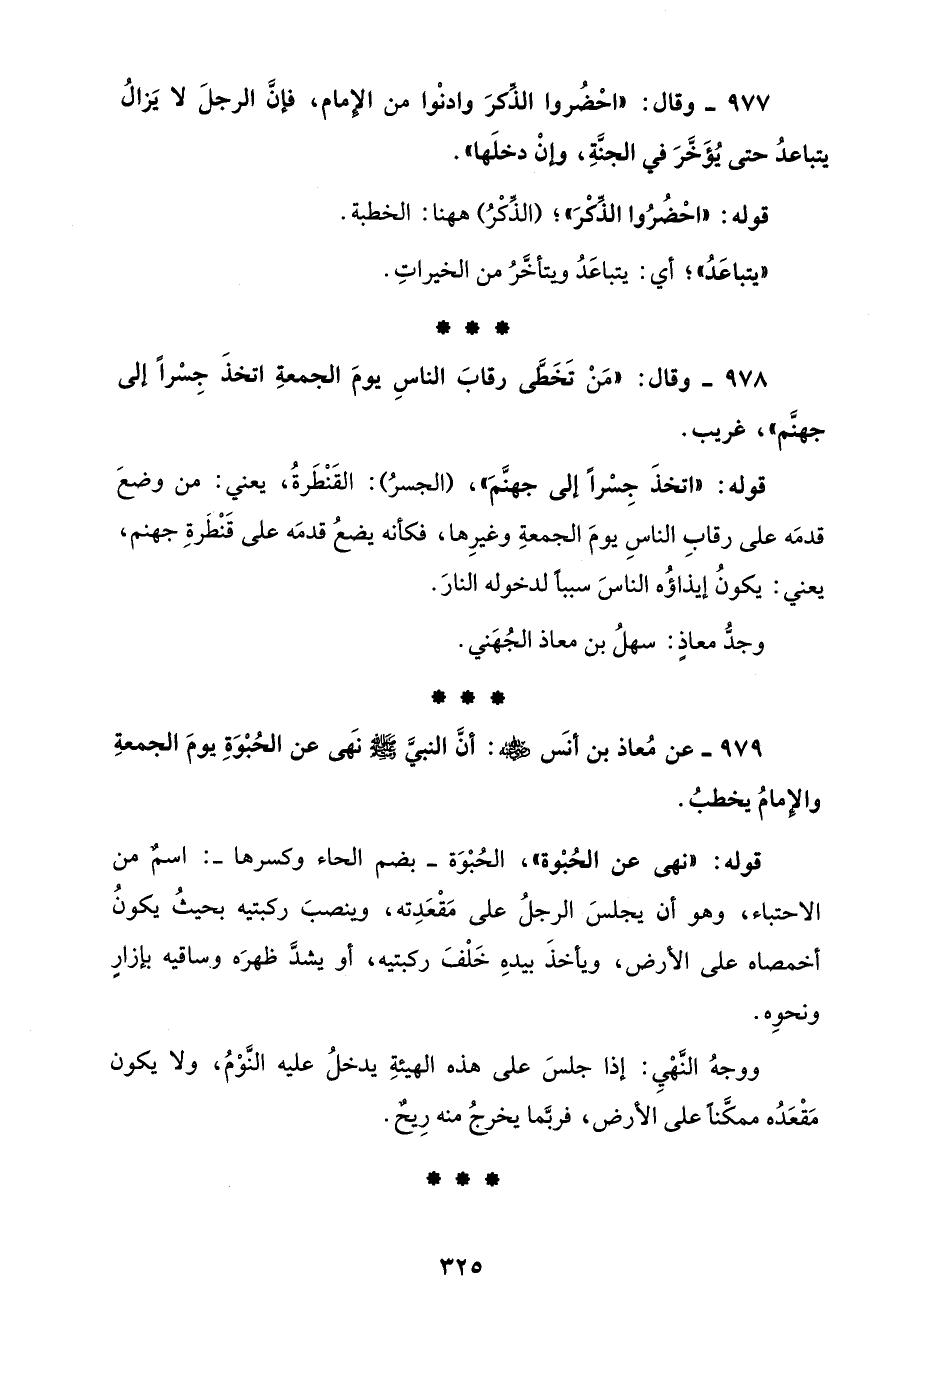 ٩٧٧ ـ وقال: «احْضُروا الذِّكرَ وادنُوا من الإمام، فإنَّ الرجلَ لا يَزالُ
يتباعدُ حتى يُؤَخَّرَ في الجنَّةِ، وإنْ دخلَها».
قوله: «احْضُرُوا الذِّكْرَ»؛ (الذِّكْرُ) ههنا: الخطبة.
«يتباعَدُ»؛ أي: يتباعَدُ ويتأخَّرُ من الخيراتِ.
* * *
٩٧٨ ـ وقال: «مَنْ تَخَطَّى رقابَ الناسِ يومَ الجمعةِ اتخذَ جِسْراً إلى
جهنَّم»، غريب.
قوله: «اتخذَ جِسْراً إلى جهنَّمَ»، (الجسرُ): القَنْطَرةُ، يعني: من وضعَ
قدمَه على رقابِ الناسِ يومَ الجمعةِ وغيرِها، فكأنه يضعُ قدمَه على قَنْطَرةِ جهنم،
يعني: يكونُ إيذاؤُه الناسَ سبباً لدخوله النارَ.
وجدُّ معاذٍ: سهلُ بن معاذ الجُهَني.
* * *
٩٧٩ ـ عن مُعاذ بن أنَس رضي الله عنه: أنَّ النبيَّ ﷺ نَهى عن الحُبْوَةِ يومَ الجمعةِ
والإمامُ يخطبُ.
قوله: «نهى عن الحُبْوة»، الحُبْوَة ـ بضم الحاء وكسرها ـ: اسمٌ من
الاحتباء، وهو أن يجلسَ الرجلُ على مَقْعَدِته، وينصبَ ركبتيه بحيثُ يكونُ
أخمصاه على الأرض، ويأخذَ بيدهِ خَلْفَ ركبتيه، أو يشدَّ ظهرَه وساقيه بإزارٍ
ونحوِه.
ووجهُ النَّهْيِ: إذا جلسَ على هذه الهيئةِ يدخلُ عليه النَّوْمُ، ولا يكون
مَقْعَدُه ممكَّناً على الأرض، فربَّما يخرجُ منه رِيحٌ.
* * *
٣٢٥